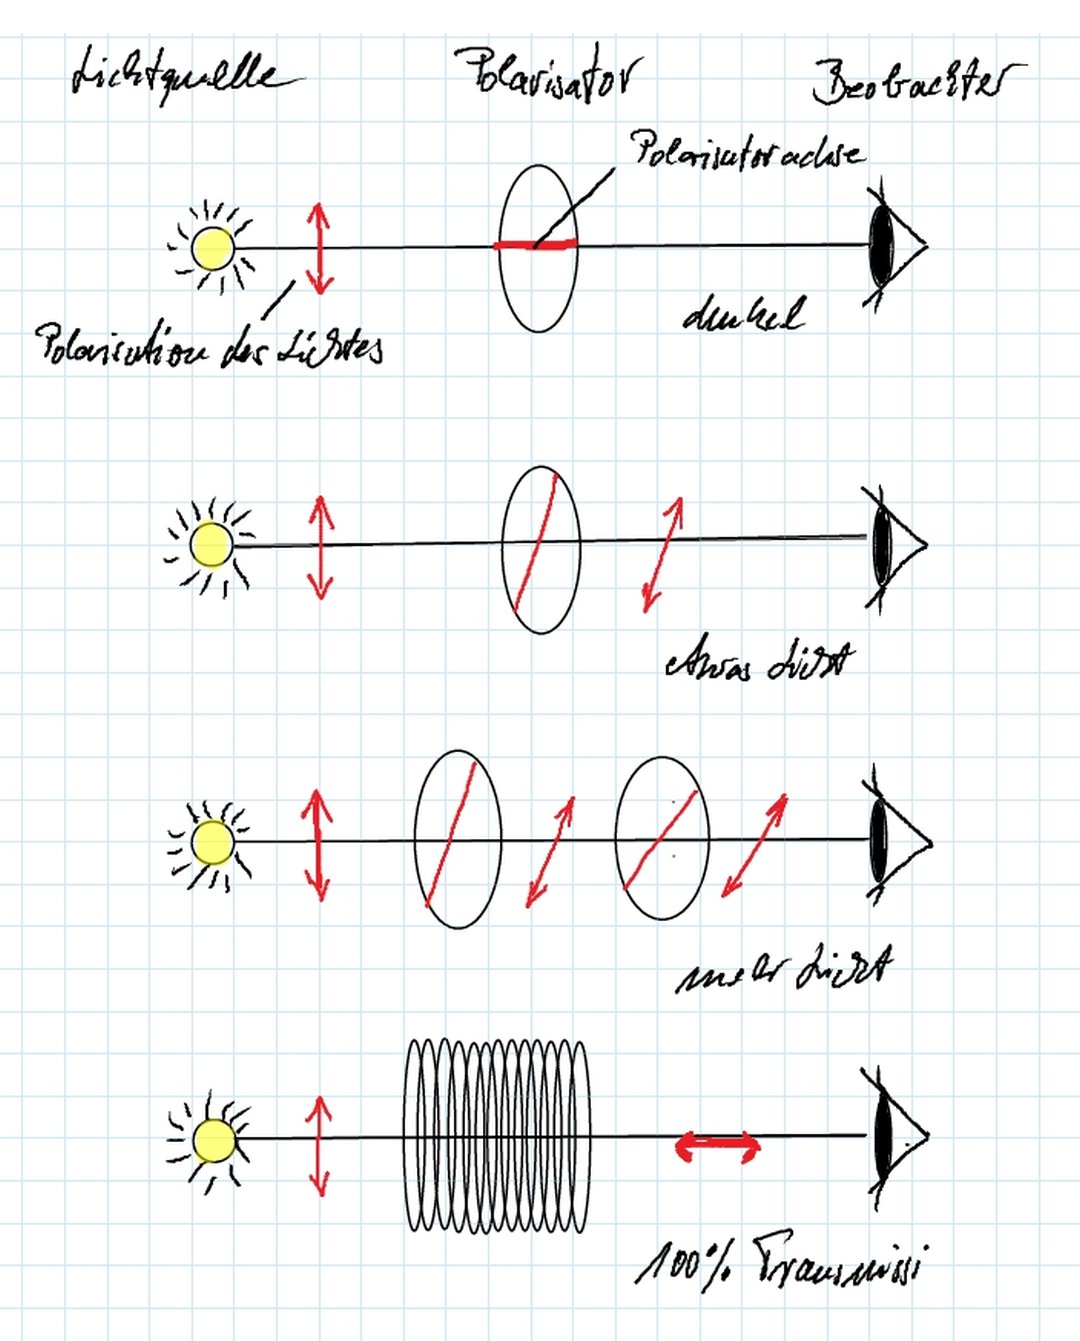 Lichtquelle Polarisator Beobachter
Polarisatorachse
dunkel
Polarisation des Lichtes
etwas Licht
mehr Licht
100% Transmissi